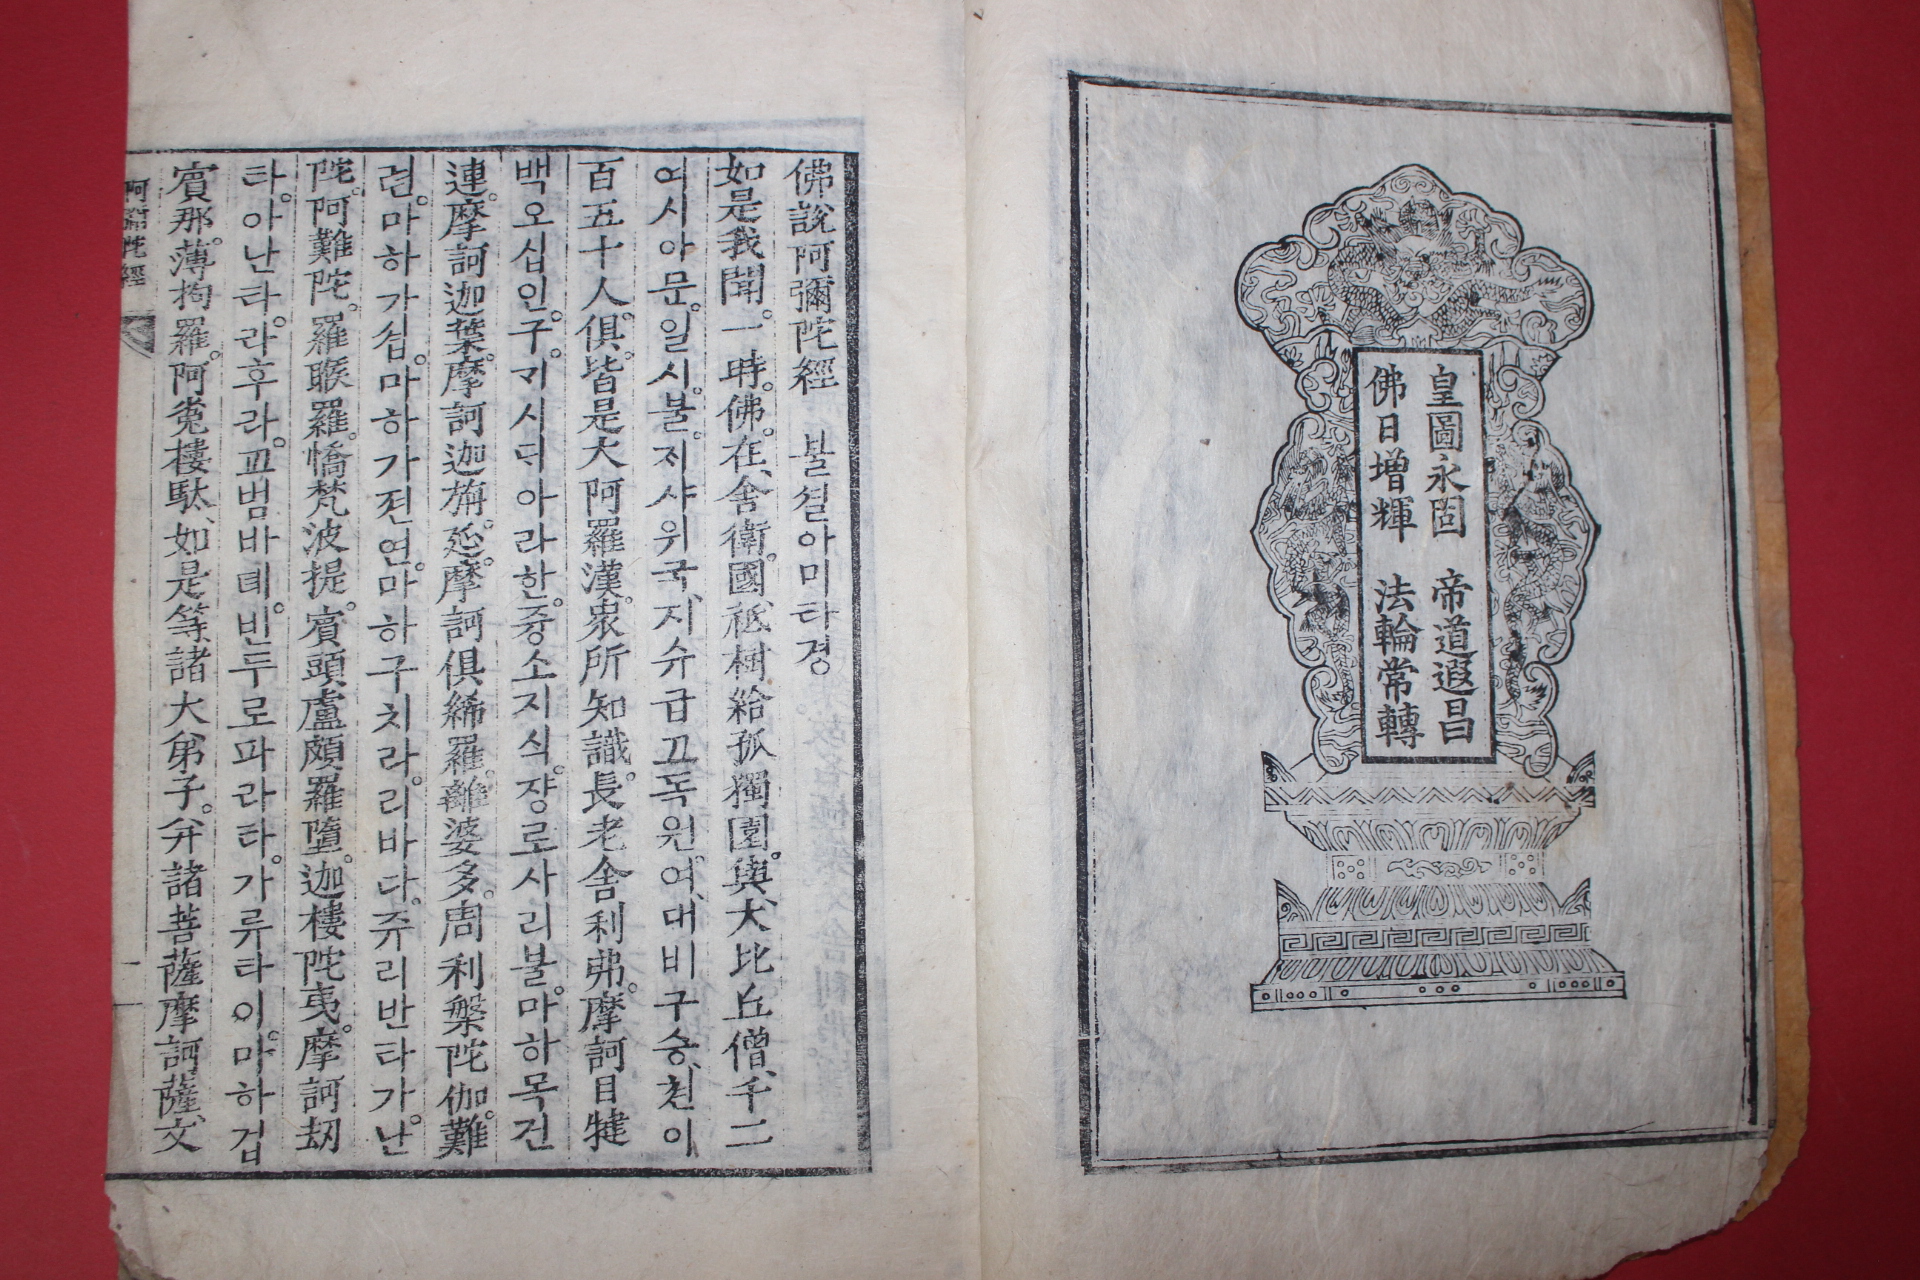 皇圖永固 帝道遐昌
佛日增輝 法輪常轉
佛說阿彌陀經 불셜아미타경
如是我聞。一時。佛。在、舍衛。國、祗樹給孤獨園。與、大比丘僧、千二
여시아문。일시。불。재、샤위국、지슈급고독원。여、대비구승、쳔이
百五十人。俱。皆是大阿羅漢。衆所知識。長老舍利弗。摩訶目犍
백오십인。구。기시대아라한。즁소지식。쟝로사리불。마하목건
連。摩訶迦葉。摩訶迦旃延。摩訶俱絺羅。離婆多。周利槃陀伽。難
련。마하가섭。마하가젼연。마하구치라。리바다。쥬리반타가。난
陀。阿難陀。羅睺羅。憍梵波提。賓頭盧頗羅墮。迦樓陀夷。摩訶劫
타。아난타。라후라。교범바뎨。빈두로파라타。가류타이。마하겁
賓那。薄拘羅。阿㝹樓馱、如是等、諸大弟子。幷諸菩薩摩訶薩、文
阿彌陀經